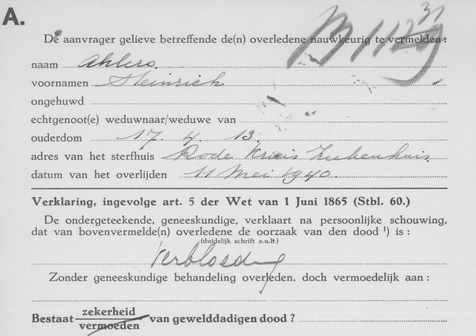 A.
De aanvrager gelieve betreffende de(n) overledene nauwkeurig te vermelden:
naam Ahlers.
voornamen Heinrich
ongehuwd
echtgenoot(e) weduwnaar/weduwe van
ouderdom 17. 4. 13.
adres van het sterfhuis Rode Kruis Ziekenhuis.
datum van het overlijden 11 Mei 1940.
Verklaring, ingevolge art. 5 der Wet van 1 Juni 1865 (Stbl. 60.)
De ondergeteekende, geneeskundige, verklaart na persoonlijke schouwing,
dat van bovenvermelde(n) overledene de oorzaak van den dood ¹) is :
(duidelijk schrift a.u.B.)
Verbloeding
Zonder geneeskundige behandeling overleden, doch vermoedelijk aan :
Bestaat zekerheid van gewelddadigen dood ?
vermoeden